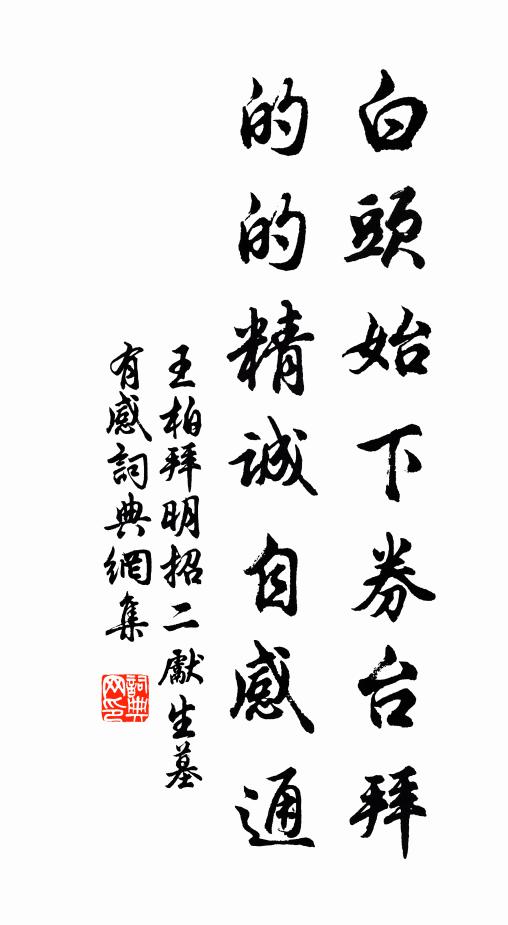 白頭始下券台拜
的的精誠自感通
王柏拜明招二獻生墓
有感詞典網集
詞典网印